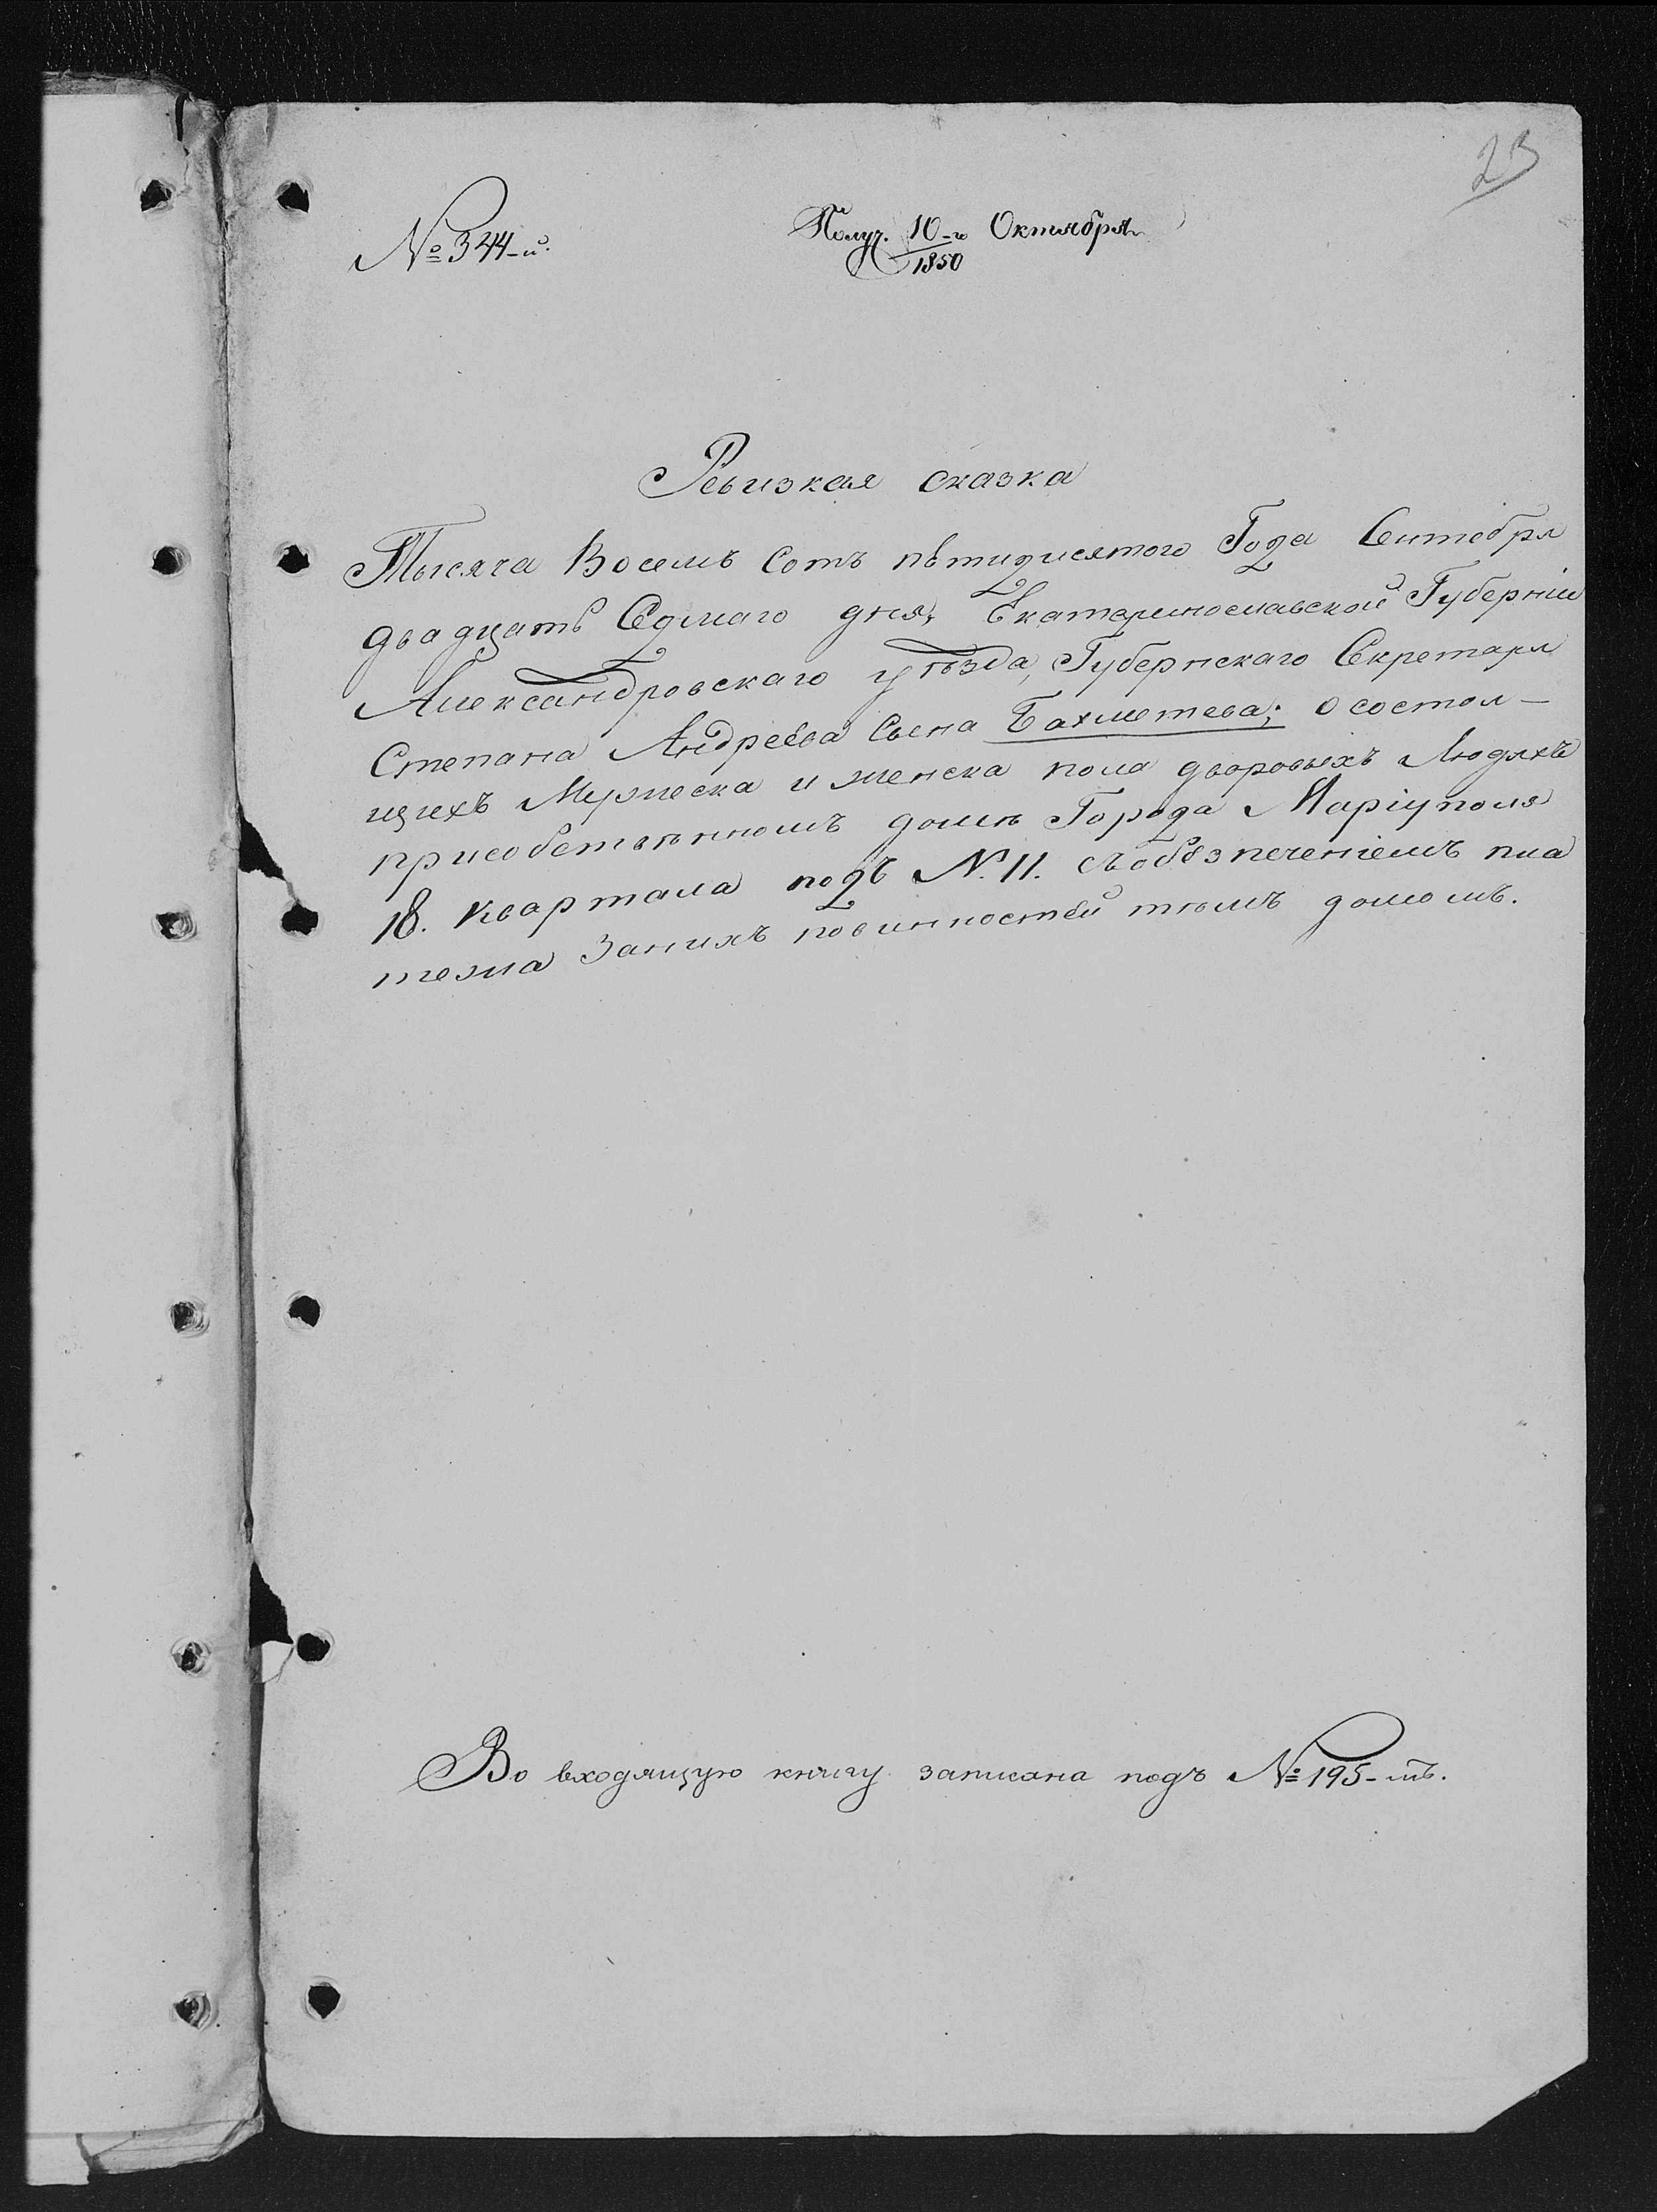 23
№ 344-й.
Получ. 10-го Октября
1850
Ревизкая сказка
Тысяча Восемъ Сотъ пѣтидисятого Года Сентебря
двадцать Седмаго дня, Екатеринославской Губерніи
Александровскаго уѣзда, Губернскаго Секретаря
Степана Андреева Сына Бахметева; о состоя-
щихъ Мужеска и женска пола дворовыхъ Людяхъ
присобственномъ доме Города Маріуполя
18. квартала подъ №. 11. съобезпеченіемъ пла
тежа Занихъ повинностей темъ домомъ.
Во входящую книгу записана подъ № 195-мъ.